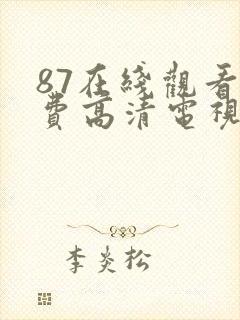 87在綫觀看
費高清電視
李炎松